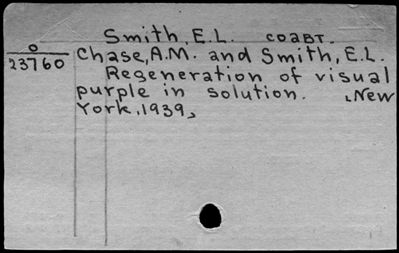 Smith, E.L. соавт.
О
23760
Chase, A.M. and Smith, E.L.
Regeneration of visual
purple in solution. [New
York, 1939,]